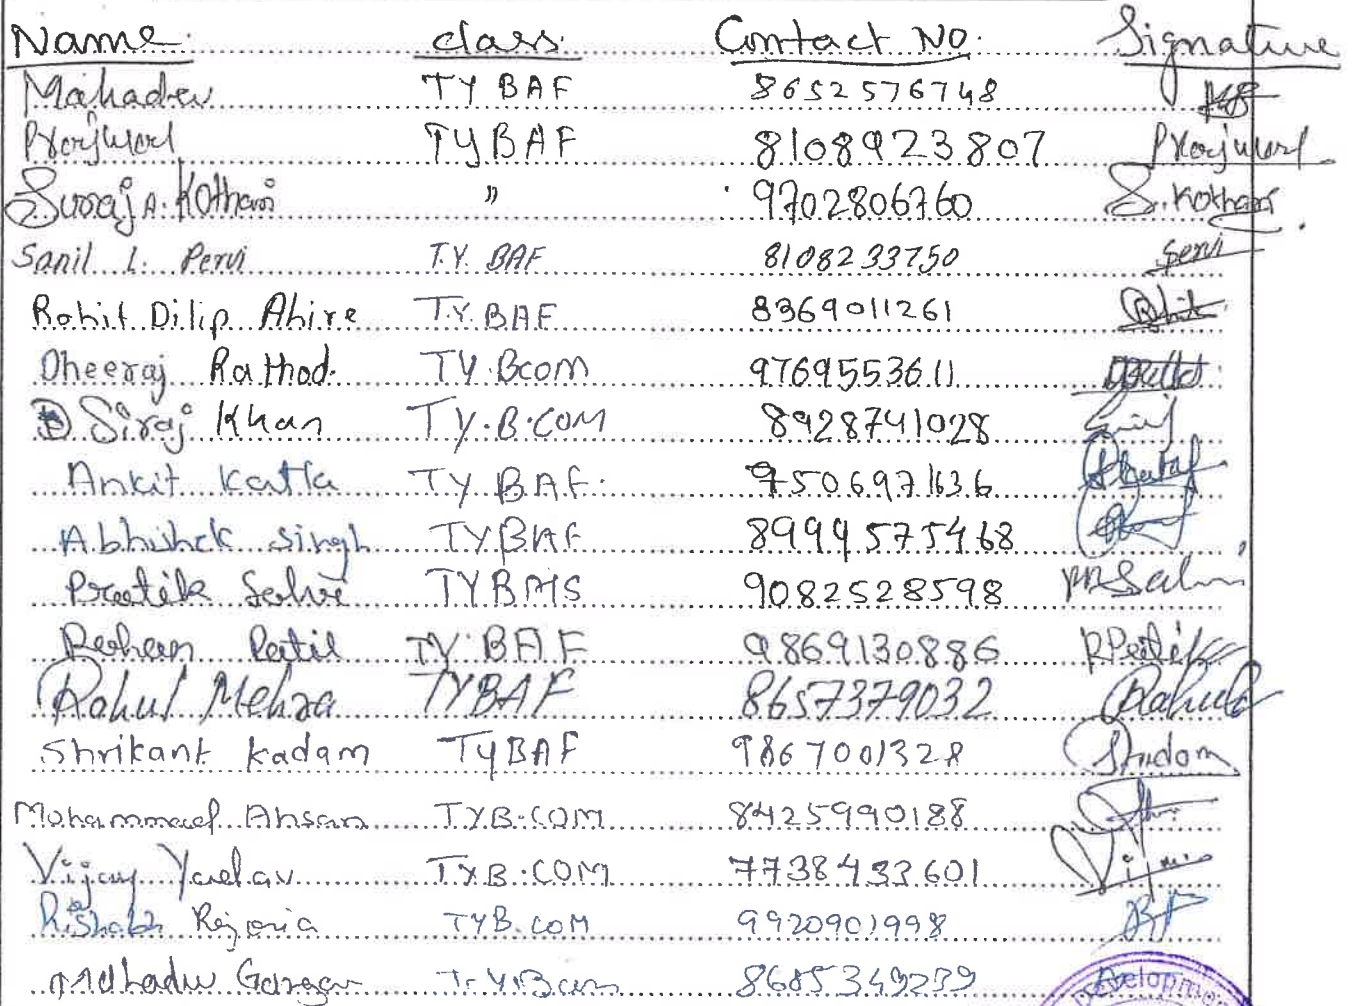 Name class Contact No. Signature
Mahadev TY BAF 8652576748
Prajwal TYBAF 8108923807 Prajwal
Suraj A. Kothari " 9702806760 S. Kothari
Sanil L. Pervi T.Y. BAF 8108233750
Rohit Dilip Ahire T.Y. BAF 8369011261 Rohit
Dheeraj Rathod. TY.Bcom 9769553611
Siraj Khan T.Y.B.COM 8928741028 Siraj
Ankit Katla TY BAF. 9506971636
Abhishek Singh TYBAF 8999575468
Prateek Salvi TYBMS 9082528598
Rohan Patil TY.BAF 9869130886 RPatil
Rahul Mehra TYBAF 8657379032 Rahul
Shrikant Kadam TYBAF 9867001328
Mohammad Ahsan TYB.COM 8425990188
Vijay Yadav TYB.COM 7738433601 Vijay
Rishabh Rejoria TYB.COM 9920901998
T.Y.Bcom 8685349239
Developm